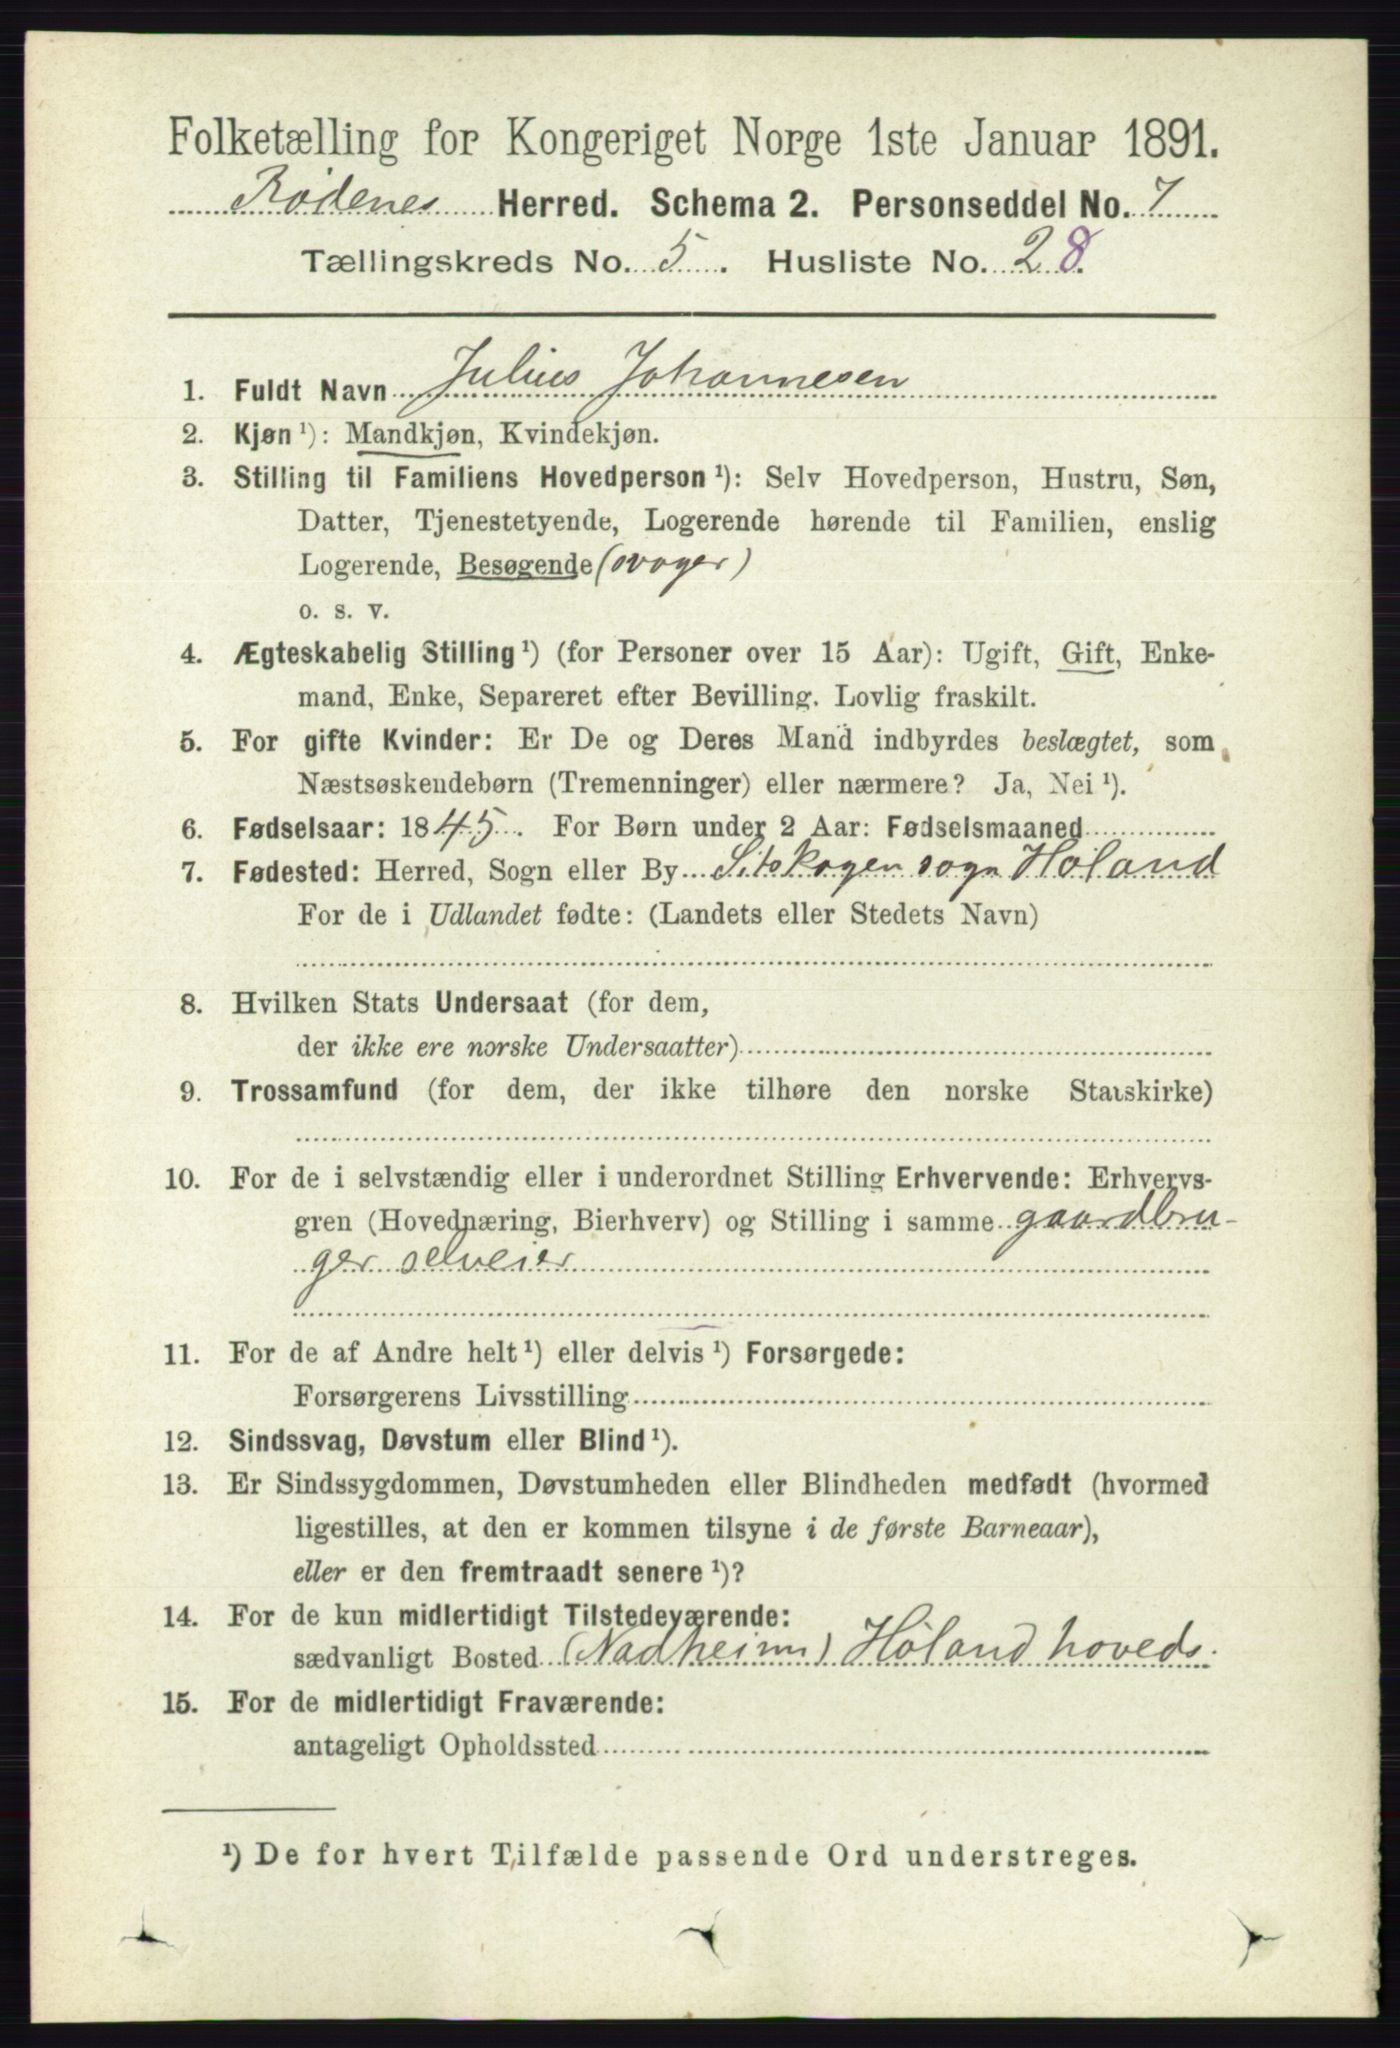 Folketælling for Kongeriget Norge 1ste Januar 1891.
Rødenes Herred. Schema 2. Personseddel No. 7
Tællingskreds No. 5. Husliste No. 28.
1. Fuldt Navn Julius Johannesen
2. Kjøn ¹): Mandkjøn, Kvindekjøn.
3. Stilling til Familiens Hovedperson ¹): Selv Hovedperson, Hustru, Søn,
Datter, Tjenestetyende, Logerende hørende til Familien, enslig
Logerende, Besøgende (svoger)
o. s. v.
4. Ægteskabelig Stilling ¹) (for Personer over 15 Aar): Ugift, Gift, Enke-
mand, Enke, Separeret efter Bevilling. Lovlig fraskilt.
5. For gifte Kvinder: Er De og Deres Mand indbyrdes beslægtet, som
Næstsøskendebørn (Tremenninger) eller nærmere? Ja, Nei ¹).
6. Fødselsaar: 1845. For Børn under 2 Aar: Fødselsmaaned
7. Fødested: Herred, Sogn eller By Sitskogen sogn Høland
For de i Udlandet fødte: (Landets eller Stedets Navn)
8. Hvilken Stats Undersaat (for dem,
der ikke ere norske Undersaatter)
9. Trossamfund (for dem, der ikke tilhøre den norske Statskirke)
10. For de i selvstændig eller i underordnet Stilling Erhvervende: Erhvervs-
gren (Hovednæring, Bierhverv) og Stilling i samme gaardbru-
ger selveier
11. For de af Andre helt ¹) eller delvis ¹) Forsørgede:
Forsørgerens Livsstilling
12. Sindssvag, Døvstum eller Blind ¹).
13. Er Sindssygdommen, Døvstumheden eller Blindheden medfødt (hvormed
ligestilles, at den er kommen tilsyne i de første Barneaar),
eller er den fremtraadt senere ¹)?
14. For de kun midlertidigt Tilstedeværende:
sædvanligt Bosted (Nadheim) Høland hoveds.
15. For de midlertidigt Fraværende:
antageligt Opholdssted
¹) De for hvert Tilfælde passende Ord understreges.